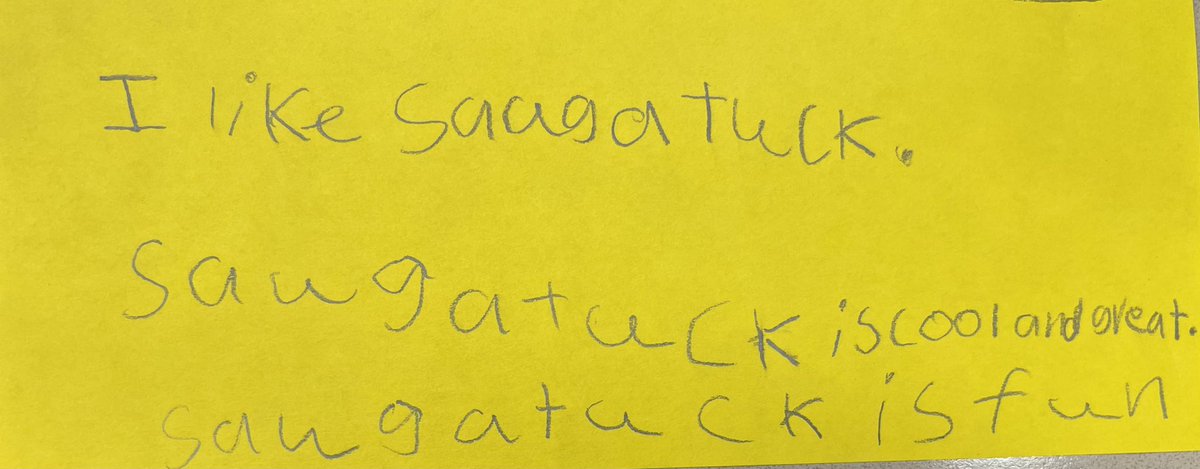 I like Saugatuck.
Saugatuck is cool and great.
saugatuck is fun